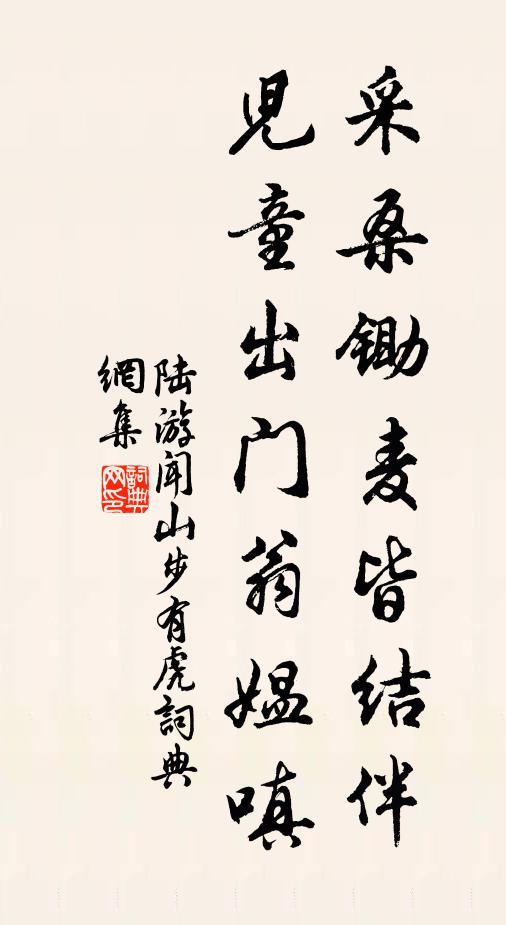 采桑锄麦皆结伴
児童出门翁媪嗔
陆游闻山步有虎詞典
網集
詞典
网印